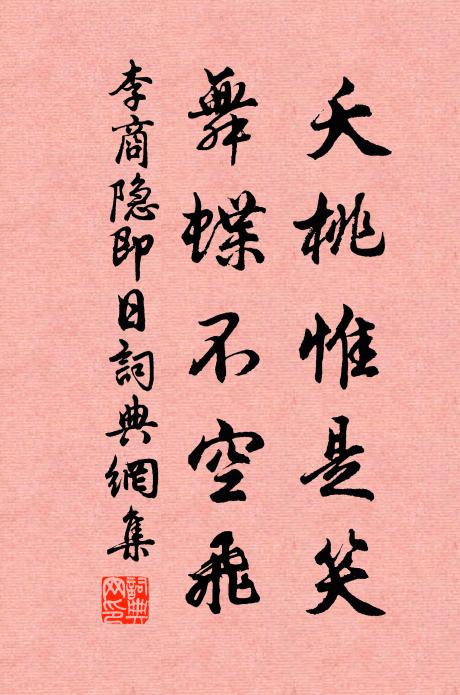 夭桃惟是笑
舞蝶不空飛
李商隐即日詞典網集
詞典網印